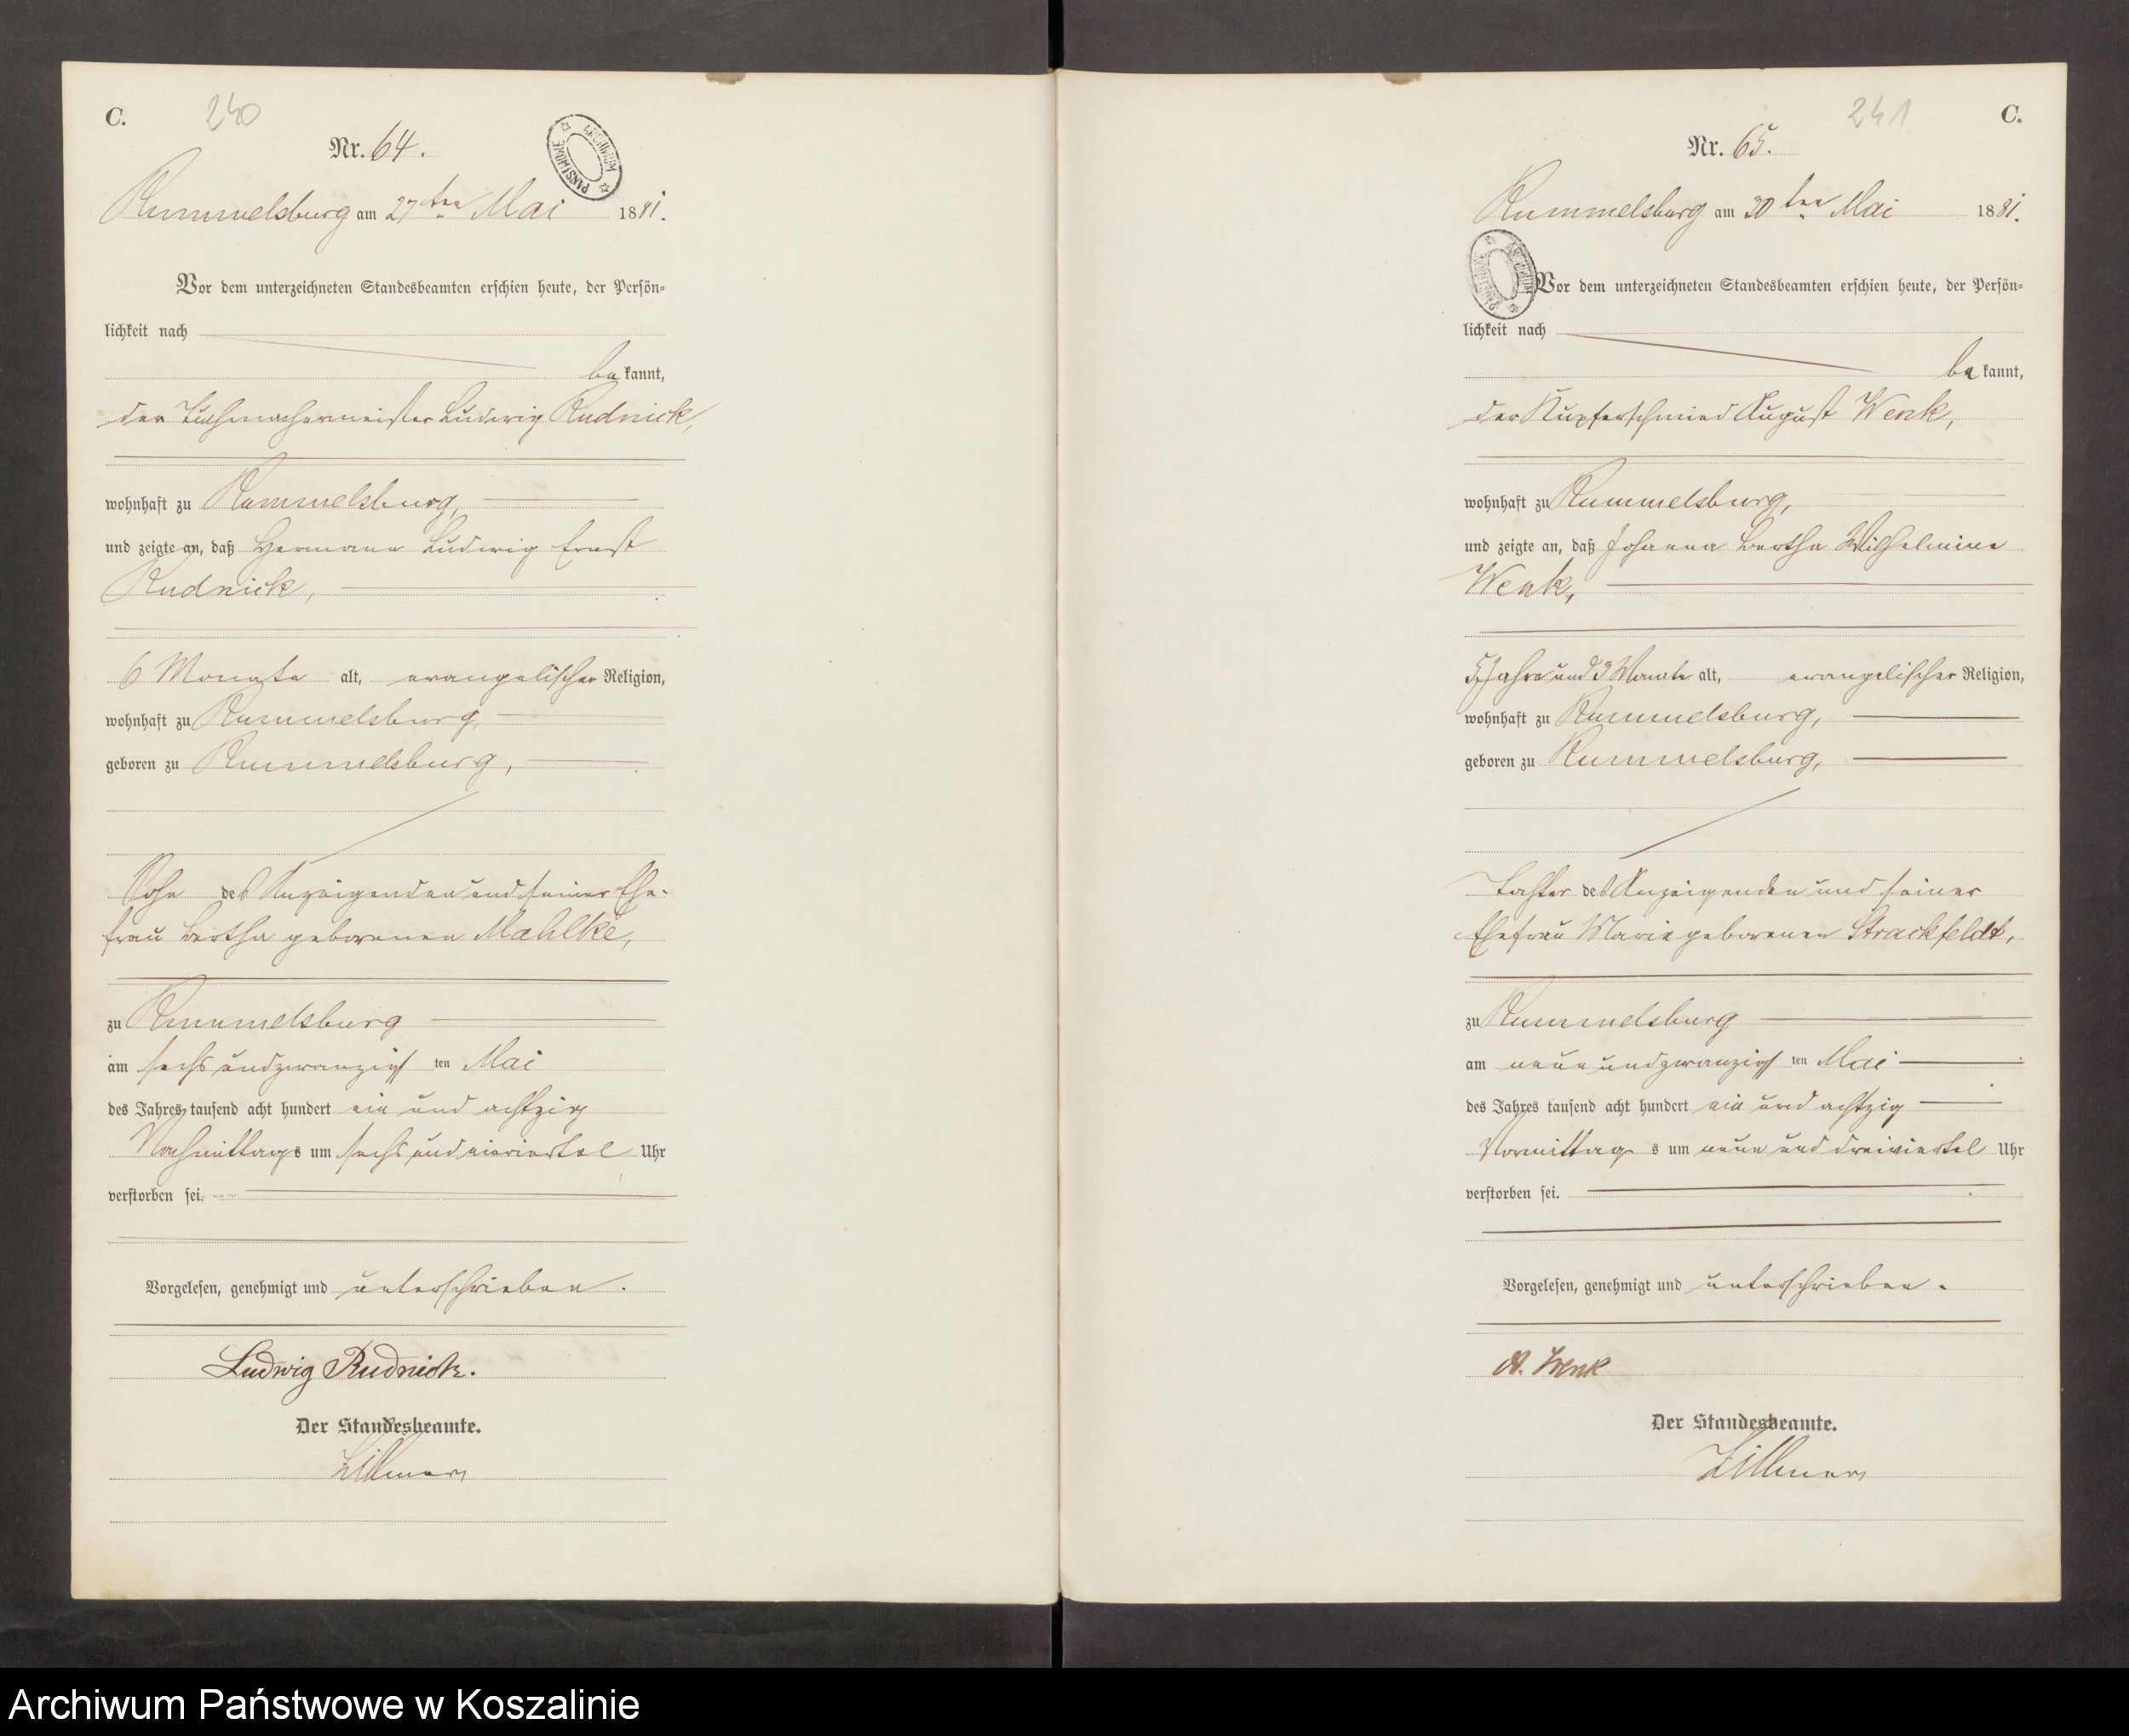 C.
240
Nr. 64.
ARCHIWUM PAŃSTWOWE
Rummelsburg am 27ten Mai 1881.
Vor dem unterzeichneten Standesbeamten erschien heute, der Persön-
lichkeit nach
bekannt,
der Tuchmachermeister Ludwig Rudnick,
wohnhaft zu Rummelsburg,
und zeigte an, daß Hermann Ludwig Ernst
Rudnick,
6 Monate alt, evangelischer Religion,
wohnhaft zu Rummelsburg,
geboren zu Rummelsburg,
Sohn des Anzeigenden und seiner Ehe-
frau Bertha geborenen Mahlke,
zu Rummelsburg
am sechsundzwanzigsten Mai
des Jahres tausend acht hundert ein und achtzig
Nachmittags um sechs und einviertel Uhr
verstorben sei.
Vorgelesen, genehmigt und unterschrieben.
Ludwig Rudnick.
Der Standesbeamte.
Zillmer
241
C.
Nr. 65.
Rummelsburg am 30ten Mai 1881.
ARCHIWUM PAŃSTWOWE
Vor dem unterzeichneten Standesbeamten erschien heute, der Persön-
lichkeit nach
bekannt,
der Kupferschmied August Wenk,
wohnhaft zu Rummelsburg,
und zeigte an, daß Johanna Bertha Wilhelmine
Wenk,
5 Jahre und 3 Monate alt, evangelischer Religion,
wohnhaft zu Rummelsburg,
geboren zu Rummelsburg,
Tochter des Anzeigenden und seiner
Ehefrau Marie geborenen Strackfeldt,
zu Rummelsburg
am neunundzwanzigsten Mai
des Jahres tausend acht hundert ein und achtzig
Vormittags um neun und dreiviertel Uhr
verstorben sei.
Vorgelesen, genehmigt und unterschrieben.
A. Wenk
Der Standesbeamte.
Zillmer
Archiwum Państwowe w Koszalinie